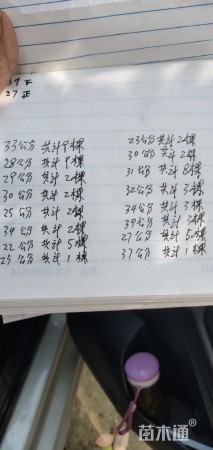 37 下
27 正
33公分 共计9棵
28公分 共计9棵
29公分 共计2棵
30公分 共计2棵
25公分 共计2棵
34公分 共计2棵
22公分 共计5棵
25公分 共计1棵
23公分 共计2棵
30公分 共计2棵
31公分 共计8棵
32公分 共计3棵
34公分 共计3棵
39公分 共计棵
27公分 共计5棵
37公分 共计1棵
苗木通